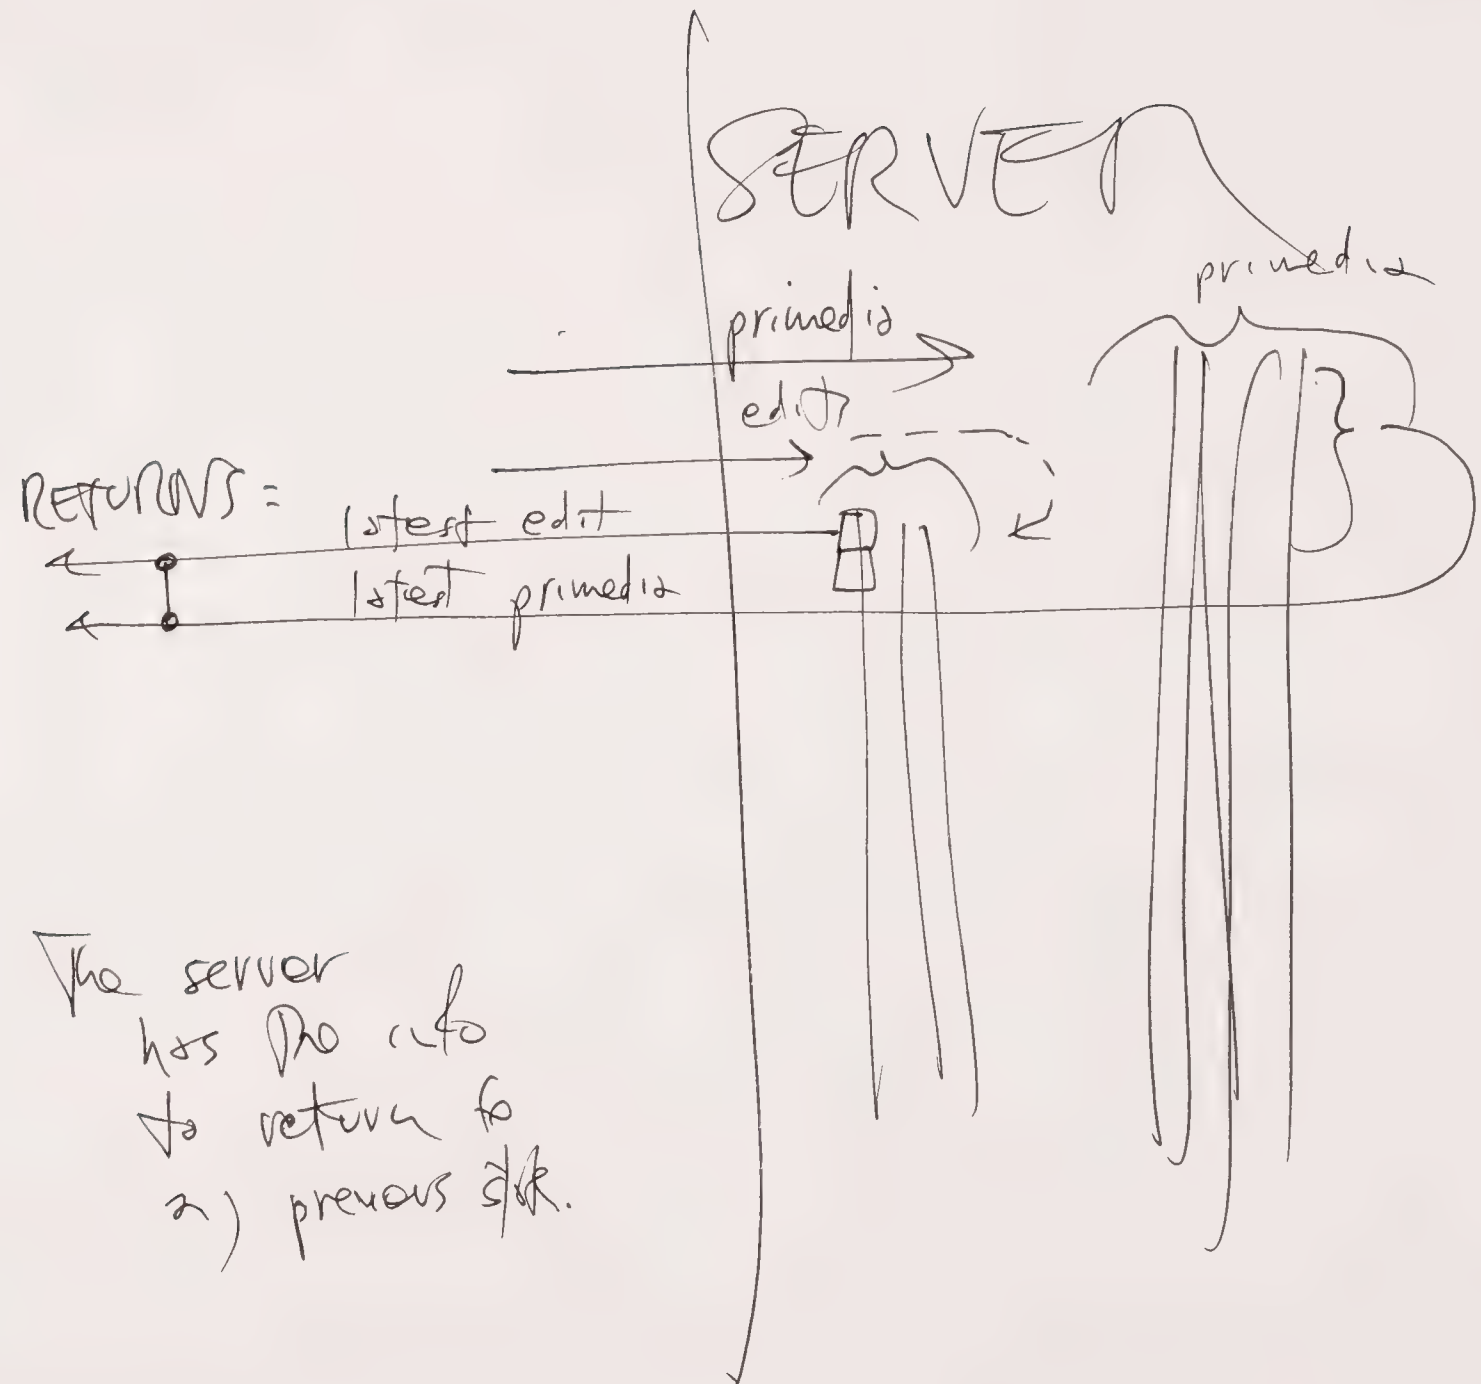 SERVER
primedia
primedia
edits
RETURNS =
latest edit
latest primedia
The server
has the info
to return to
a) previous